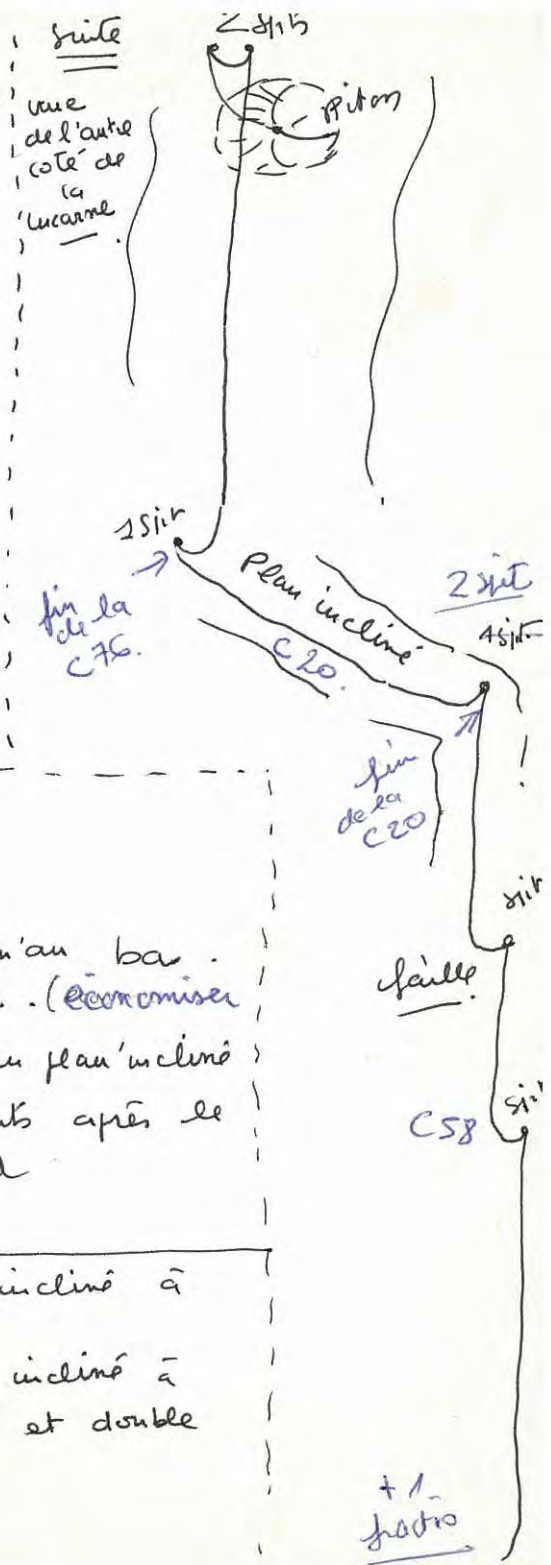 suite
2 spits
vue
de l'autre
coté de
la
lucarne.
Piton
1 spit
fin
de la
C76.
Plan incliné
C20.
2 spit
1 spit
fin
de la
C20
spit
faille
C58
spit
+ 1
fractio
'au bas.
. (économiser
plan incliné
après le
incliné à
incliné à
et double